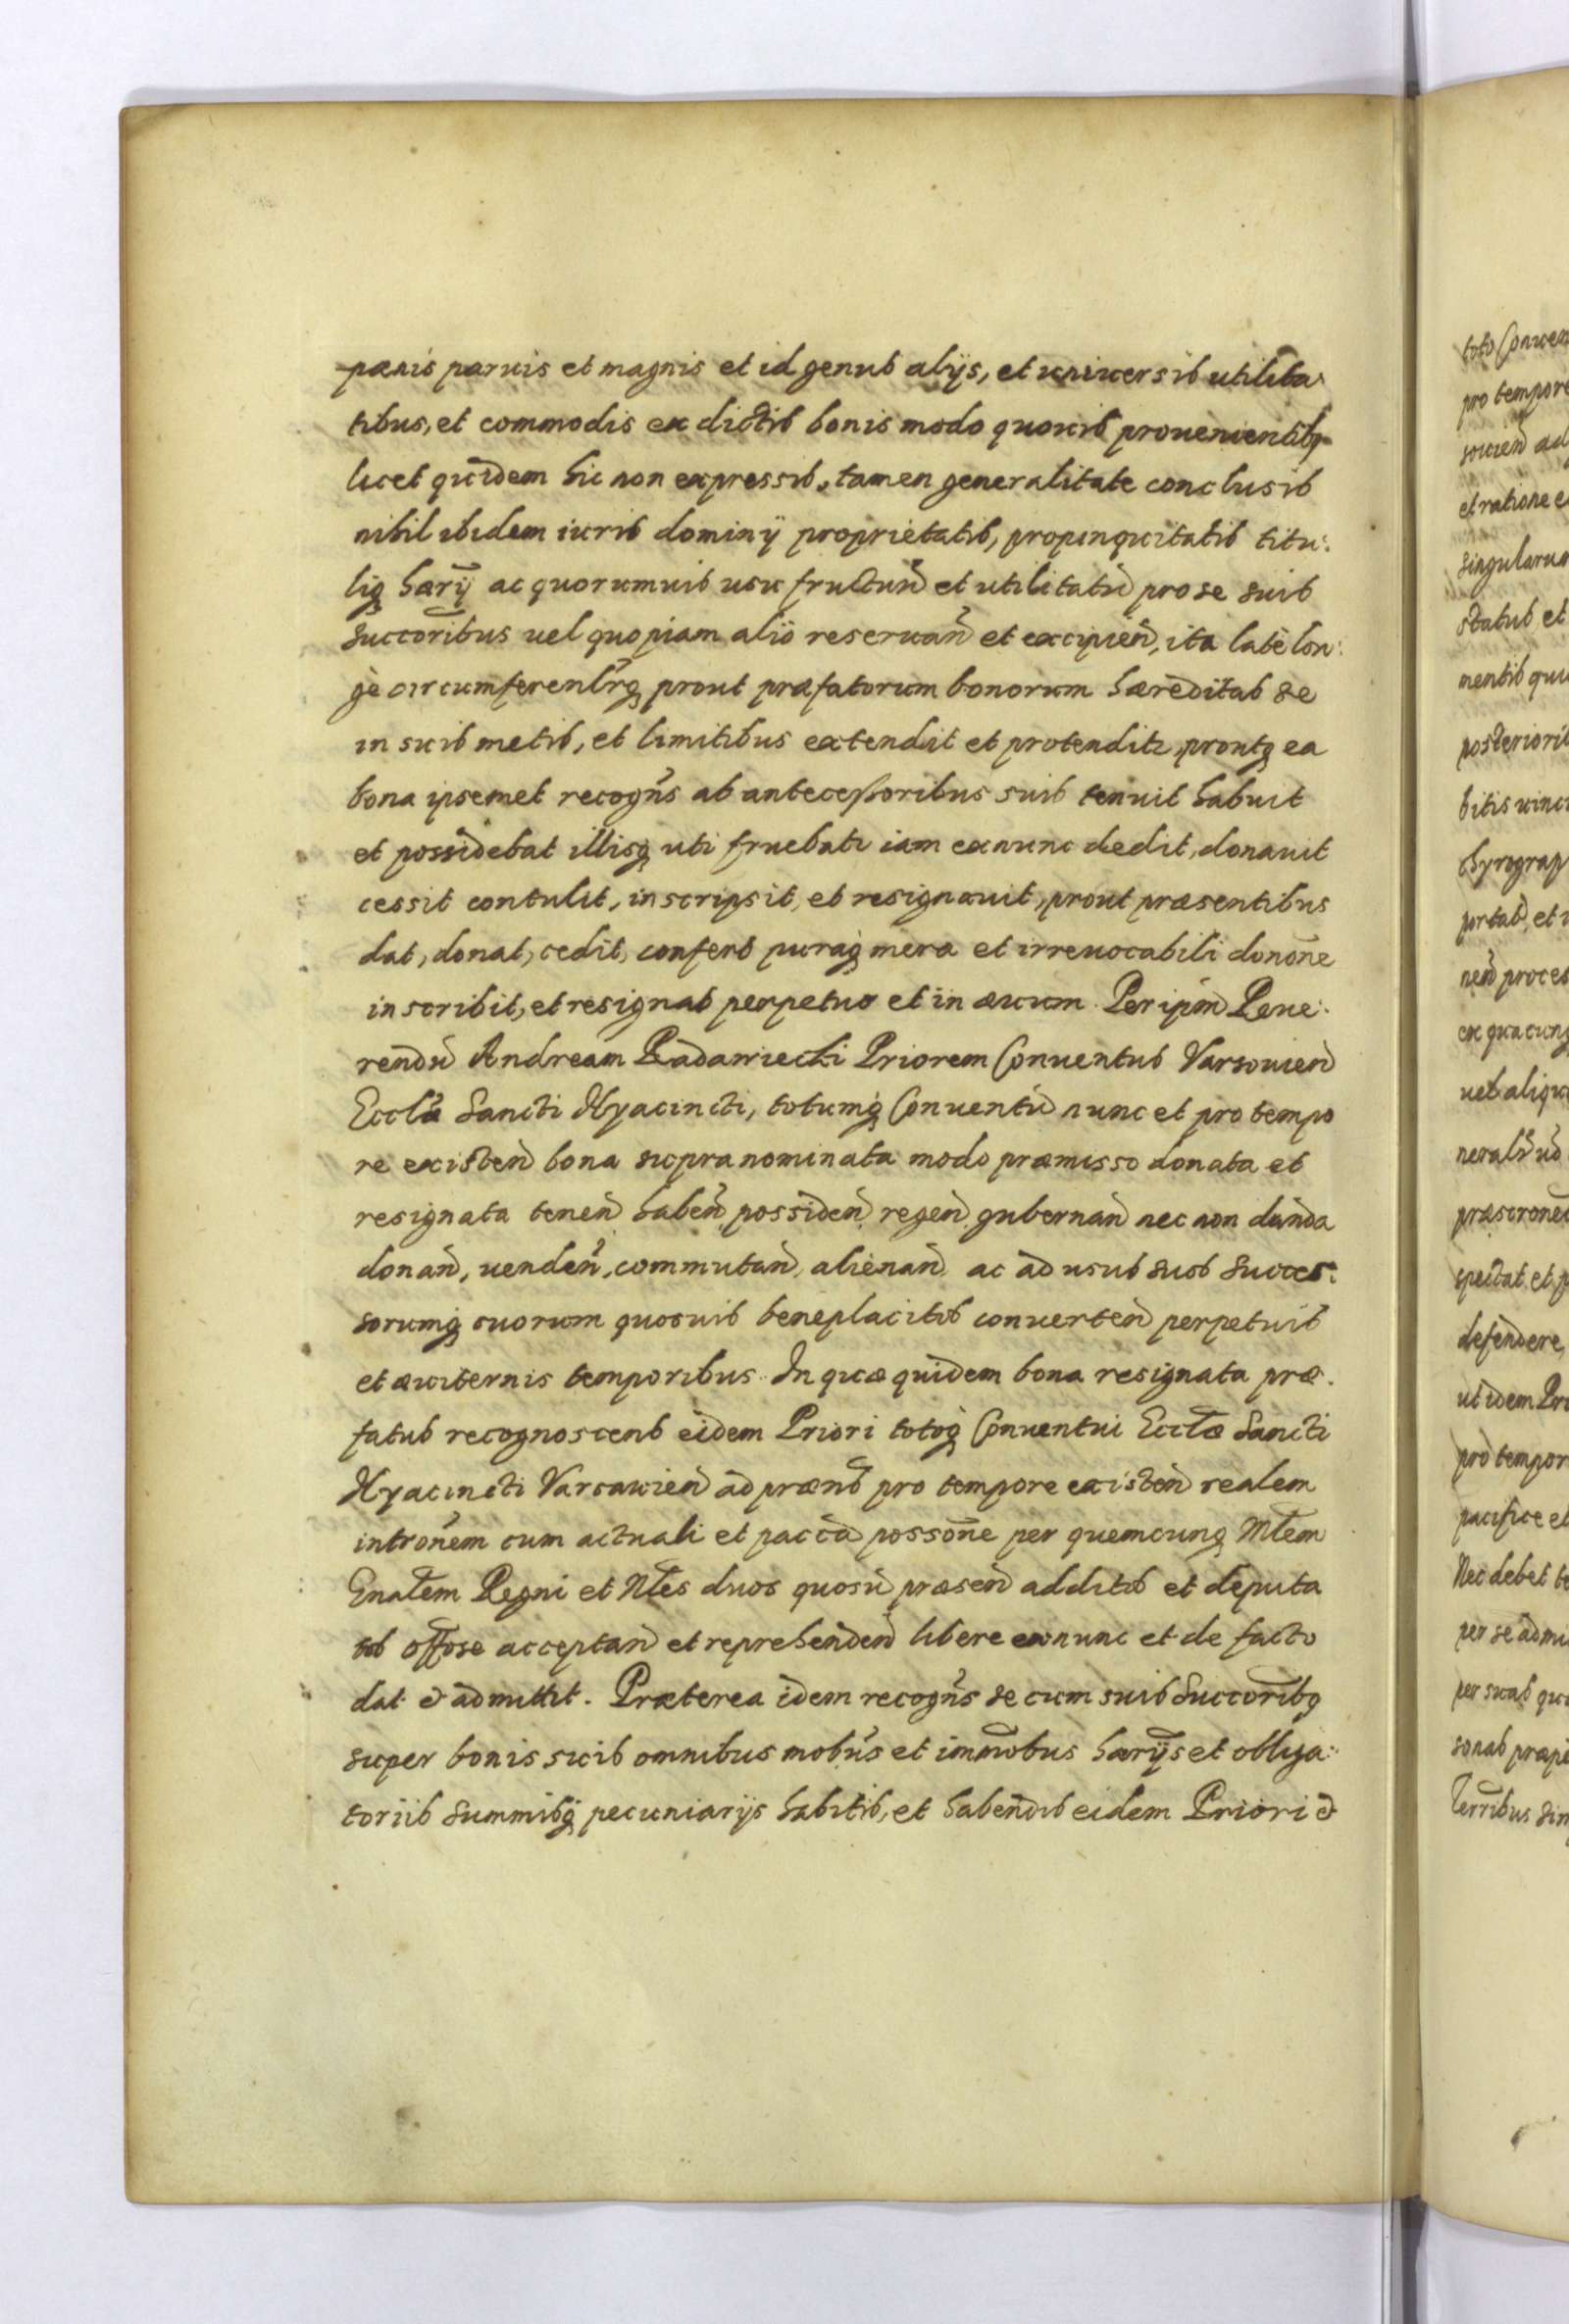 pænis paruis et magnis et id genus alijs, et uniuersis utilita:
tibus, et commodis ex dictis bonis modo quouis prouenientibq
licet quidem hic non expressis, tamen generalitate conclusis
nihil ibidem iuris dominij proprietatis, propinquitatis titu:
liq hærij ac quorumuis usu fructuu et utilitatu pro se suis
succoribus uel quopiam alio reseruan et excipien, ita latè lon:
gè circumferentrq prout præfatorum bonorum hæreditas se
in suis metis, et limitibus extendit et protendit, proutq ea
bona ipsemet recogns ab antecessoribus suis tenuit habuit
et possidebat illisq uti fruebatr iam exnunc dedit, donauit
cessit contulit, inscripsit, et resignauit, prout præsentibus
dat, donat, cedit, confert puraq mera et irreuocabili donone
inscribit, et resignat perpetuo et in æuum. Per ipm Reue:
rendu Andream Radawiecki Priorem Conuentus Varsouien
Eccla Sancti Hyacincti, totumq Conuentu nunc et pro tempo
re existen bona supranominata modo præmisso donata et
resignata tenen haben possiden regen gubernan nec non danda
donan, uenden, commutan, alienan ac ad usus suos succes:
sorumq suorum quosuis beneplacitos conuerten perpetuis
et æuiternis temporibus. In quæ quidem bona resignata præ:
fatus recognoscens eidem Priori totoq Conuentui Ecclæ Sancti
Hyacincti Varsauien ad præns pro tempore existen realem
intronem cum actuali et pacca possone per quemcunq Mtem
Gnalem Regni et Nles duos quosu præsen additos et deputa
tos offose acceptan et reprehenden libere exnunc et de facto
dat & admittit. Præterea idem recogns se cum suis Succoribq
super bonis suis omnibus mobns et immobus hærijs et obliga:
toriis summisq pecuniarijs habitis, et habendis eidem Priori &
toto Conuen
pro tempore
souien ad
et ratione e
singularum
status et
mentis qui
posteriori
bitis uinc
chyrograp
portat, et
nen proces
ex quacunq
uel aliqu
neral
spectat et p
defendere,
ut idem Pri
pro tempor
pacifice et
Nec debet te
per se admi
per suas qu
sonas